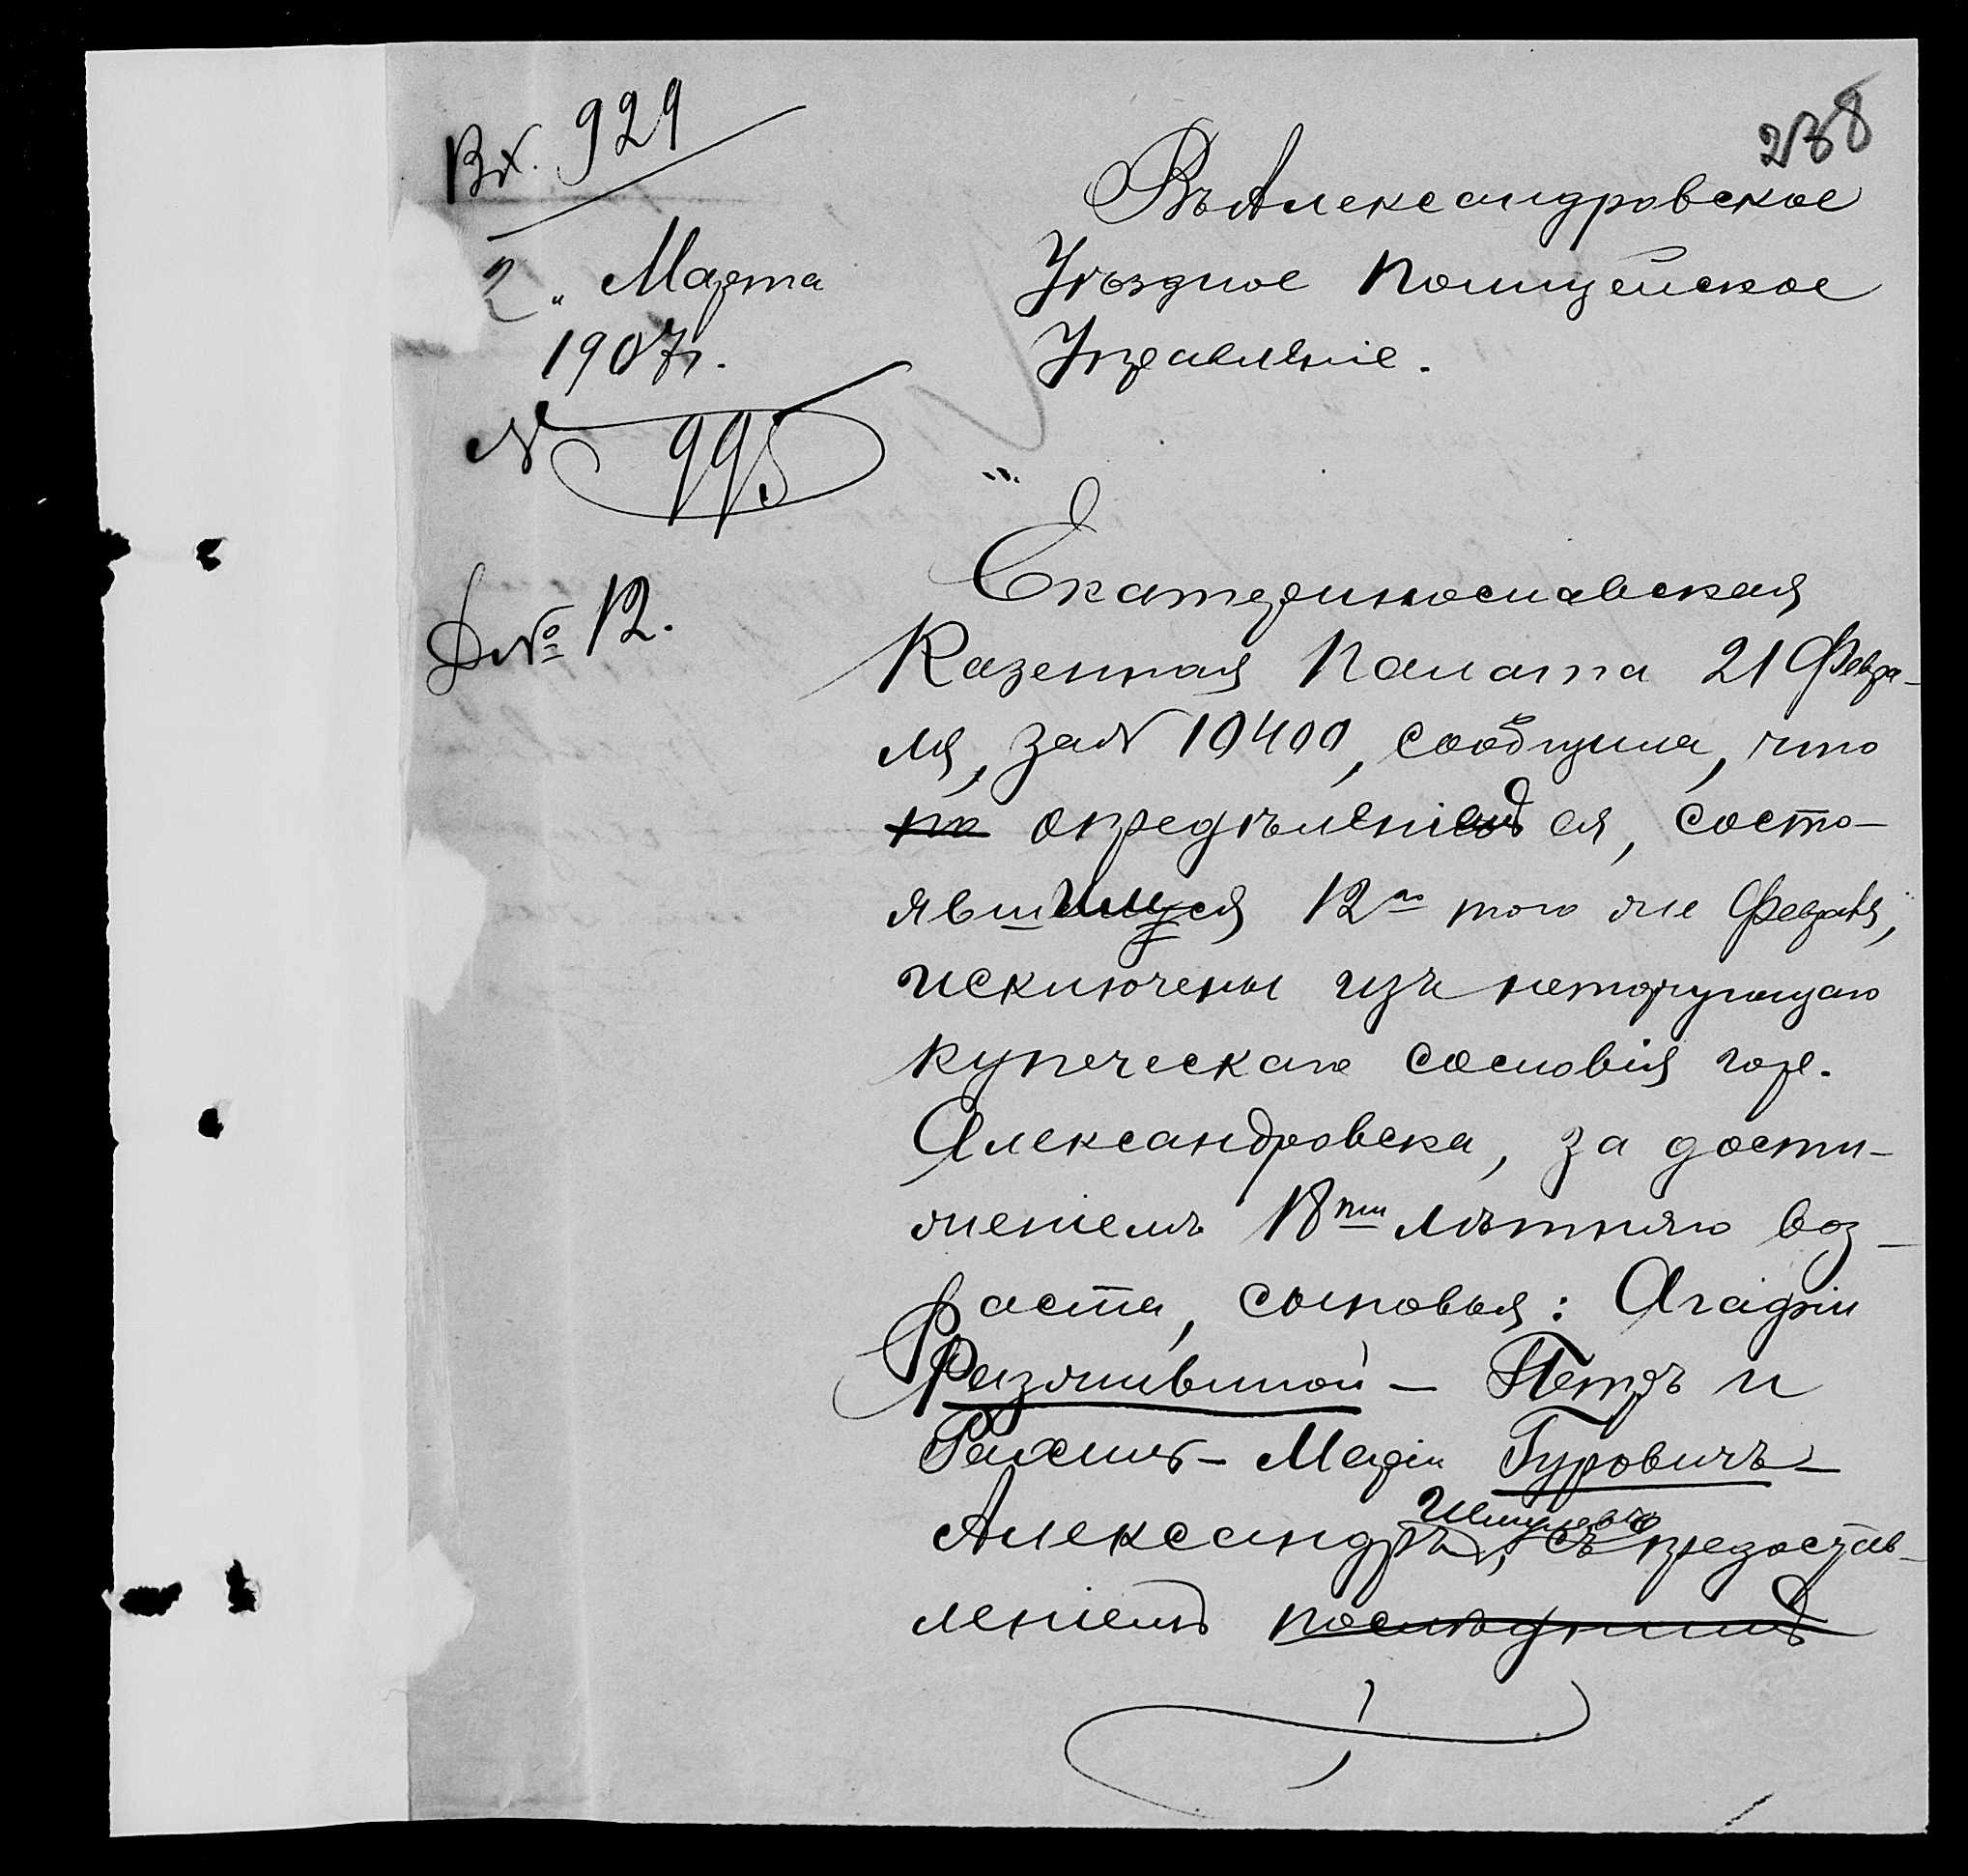 238
Вх. 929
2 „ Марта
1907г.
№ 995
Д № 12.
Въ Александровское
Уѣздное Полицейское
Управленіе.
Екатеринославская
Казенная Палата 21 Февра-
ля, за № 10400, сообщила, что
по опредѣленіемъ ея, состо-
явшимся 12го того же Февраля,
исключены изъ неторгующаго
купеческаго сословія гор.
Александровска, за дости-
женіемъ 18ти лѣтняго воз-
раста, сыновья: Агафіи
Разживиной — Петръ и
Рахиль-Маріи Гуровичъ —
Александръ, съ предостав-
леніемъ послѣднимъ